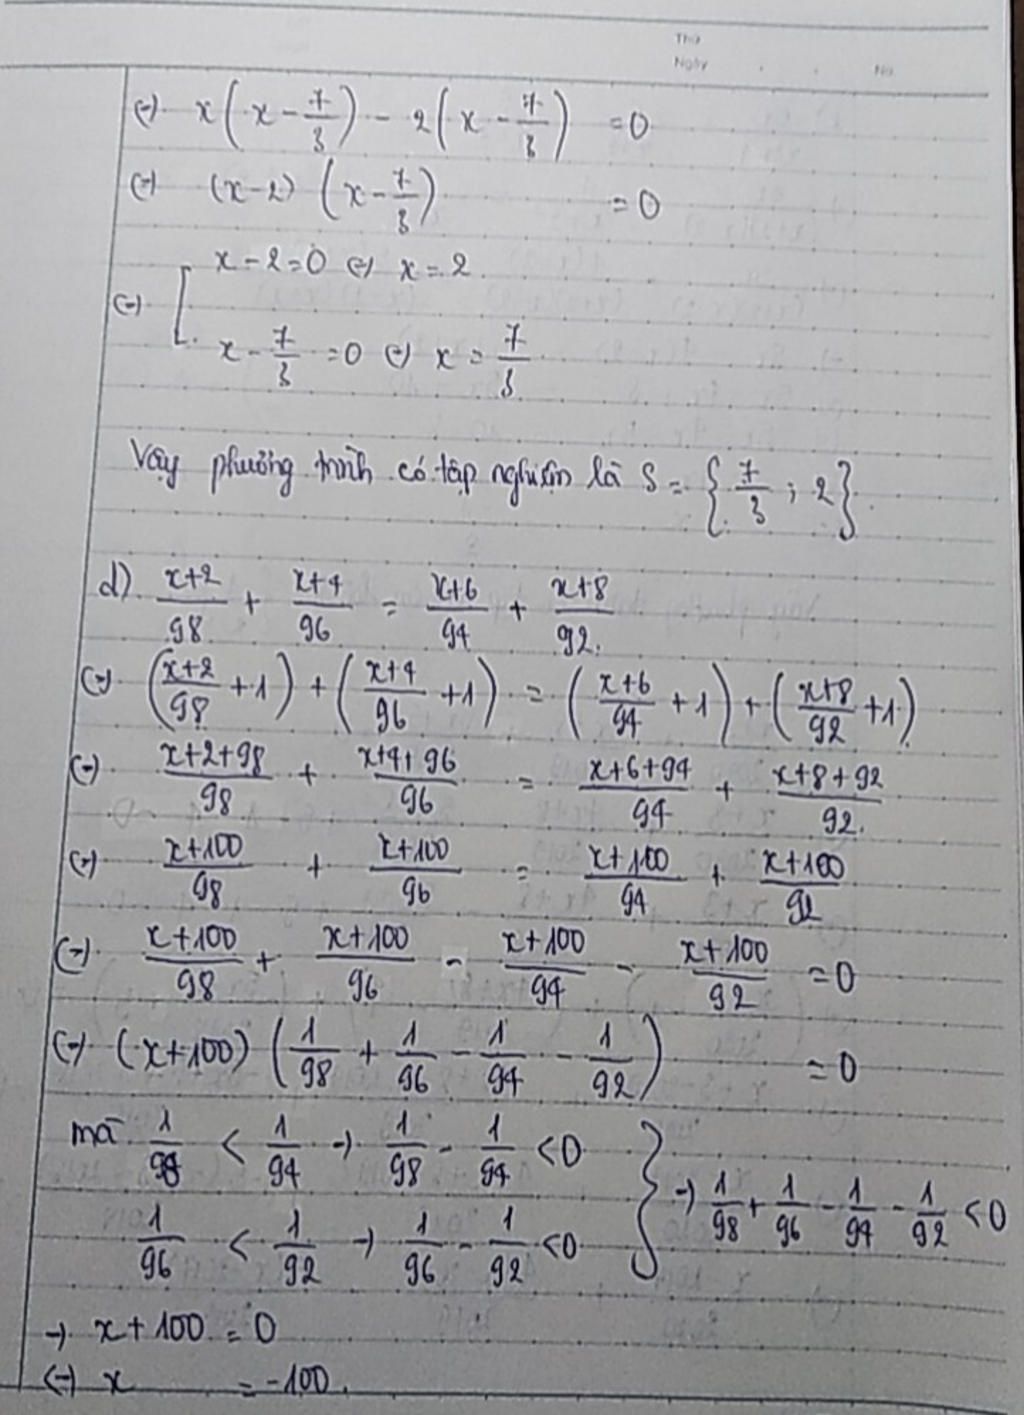 Thứ
Ngày . . No
(=) x(x - 7/3) - 2(x - 7/3) = 0
(=) (x-2) (x - 7/3) = 0
(=) [ x - 2 = 0 (=) x = 2
x - 7/3 = 0 (=) x = 7/3
Vậy phương trình có tập nghiệm là S = {7/3 ; 2}.
d) (x+2)/98 + (x+4)/96 = (x+6)/94 + (x+8)/92.
(=) ((x+2)/98 + 1) + ((x+4)/96 + 1) = ((x+6)/94 + 1) + ((x+8)/92 + 1)
(=) (x+2+98)/98 + (x+4+96)/96 = (x+6+94)/94 + (x+8+92)/92.
(=) (x+100)/98 + (x+100)/96 = (x+100)/94 + (x+100)/92
(=) (x+100)/98 + (x+100)/96 - (x+100)/94 - (x+100)/92 = 0
(=) (x+100) (1/98 + 1/96 - 1/94 - 1/92) = 0
mà 1/98 < 1/94 → 1/98 - 1/94 < 0
1/96 < 1/92 → 1/96 - 1/92 < 0 } → 1/98 + 1/96 - 1/94 - 1/92 < 0
→ x + 100 = 0
(=) x = -100.